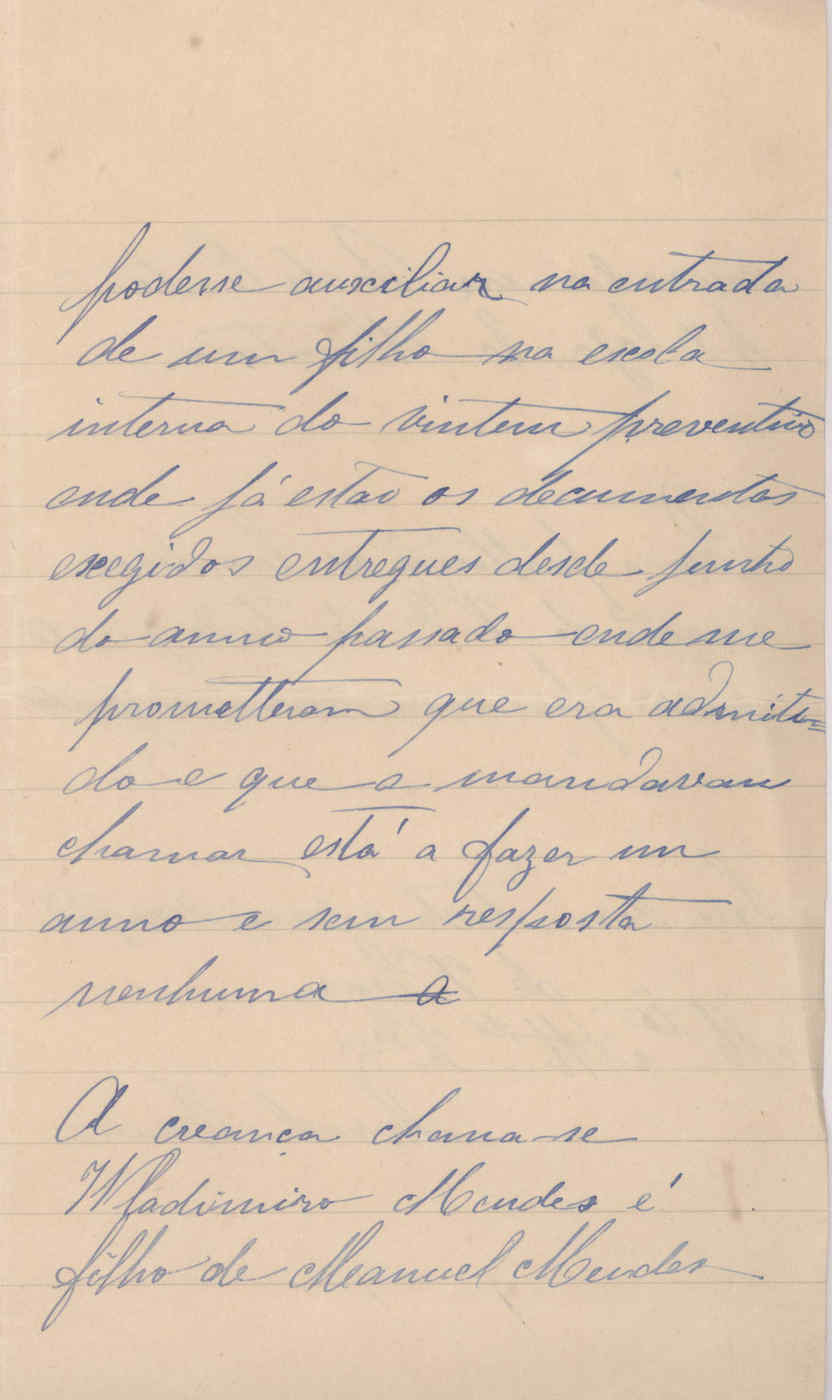 podesse auxiliar na entrada
de um filho na escola
interna do vintem preventivo
onde já estão os documentos
exegidos entregues desde junho
do anno passado onde me
prometteram que era admiti=
do e que o mandavam
chamar está a fazer um
anno e sem resposta
nenhuma a
A creança chama-se
Wladimiro Mendes é
filho de Manuel Mendes